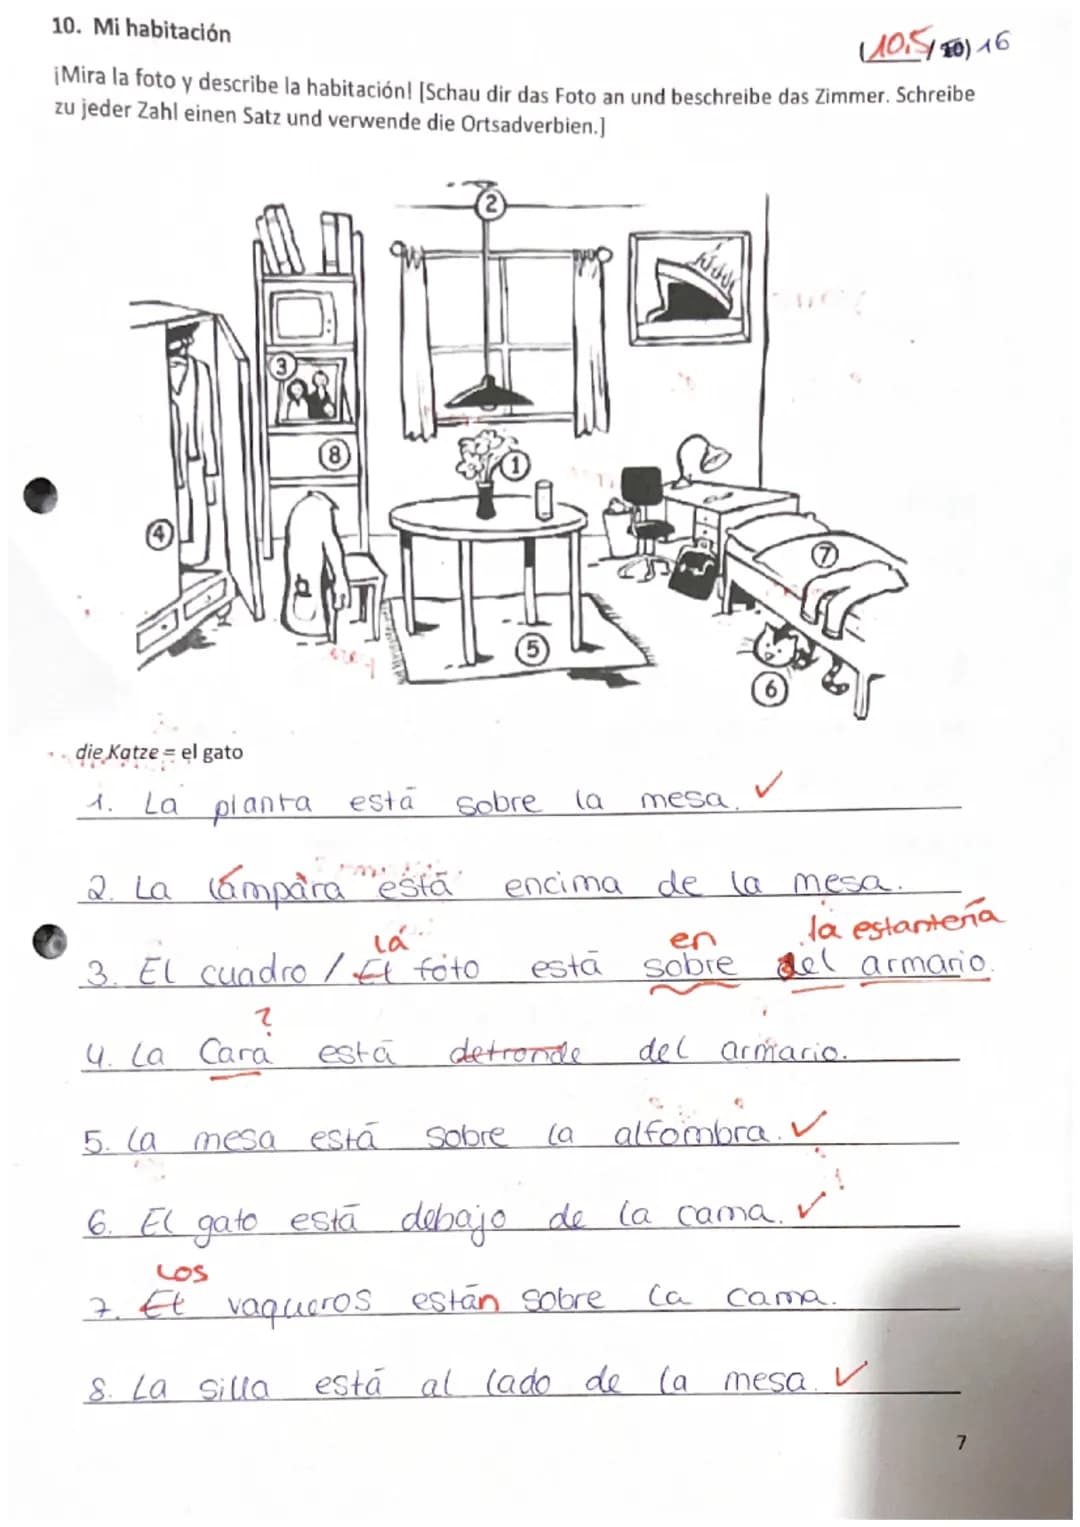 10. Mi habitación
(10,5/20) 16
¡Mira la foto y describe la habitación! [Schau dir das Foto an und beschreibe das Zimmer. Schreibe
zu jeder Zahl einen Satz und verwende die Ortsadverbien.]
2
3
8
1
4
7
5
6
die Katze = el gato
1. La planta está sobre la mesa. ✓
2. La lámpara está encima de la mesa.
la en la estantería
3. El cuadro / El foto está sobre del armario.
?
4. La Cara está detronde del armario.
5. La mesa está sobre la alfombra. ✓
6. El gato está debajo de la cama. ✓
Los
7. El vaqueros están sobre la cama.
8. La silla está al lado de la mesa. ✓
7